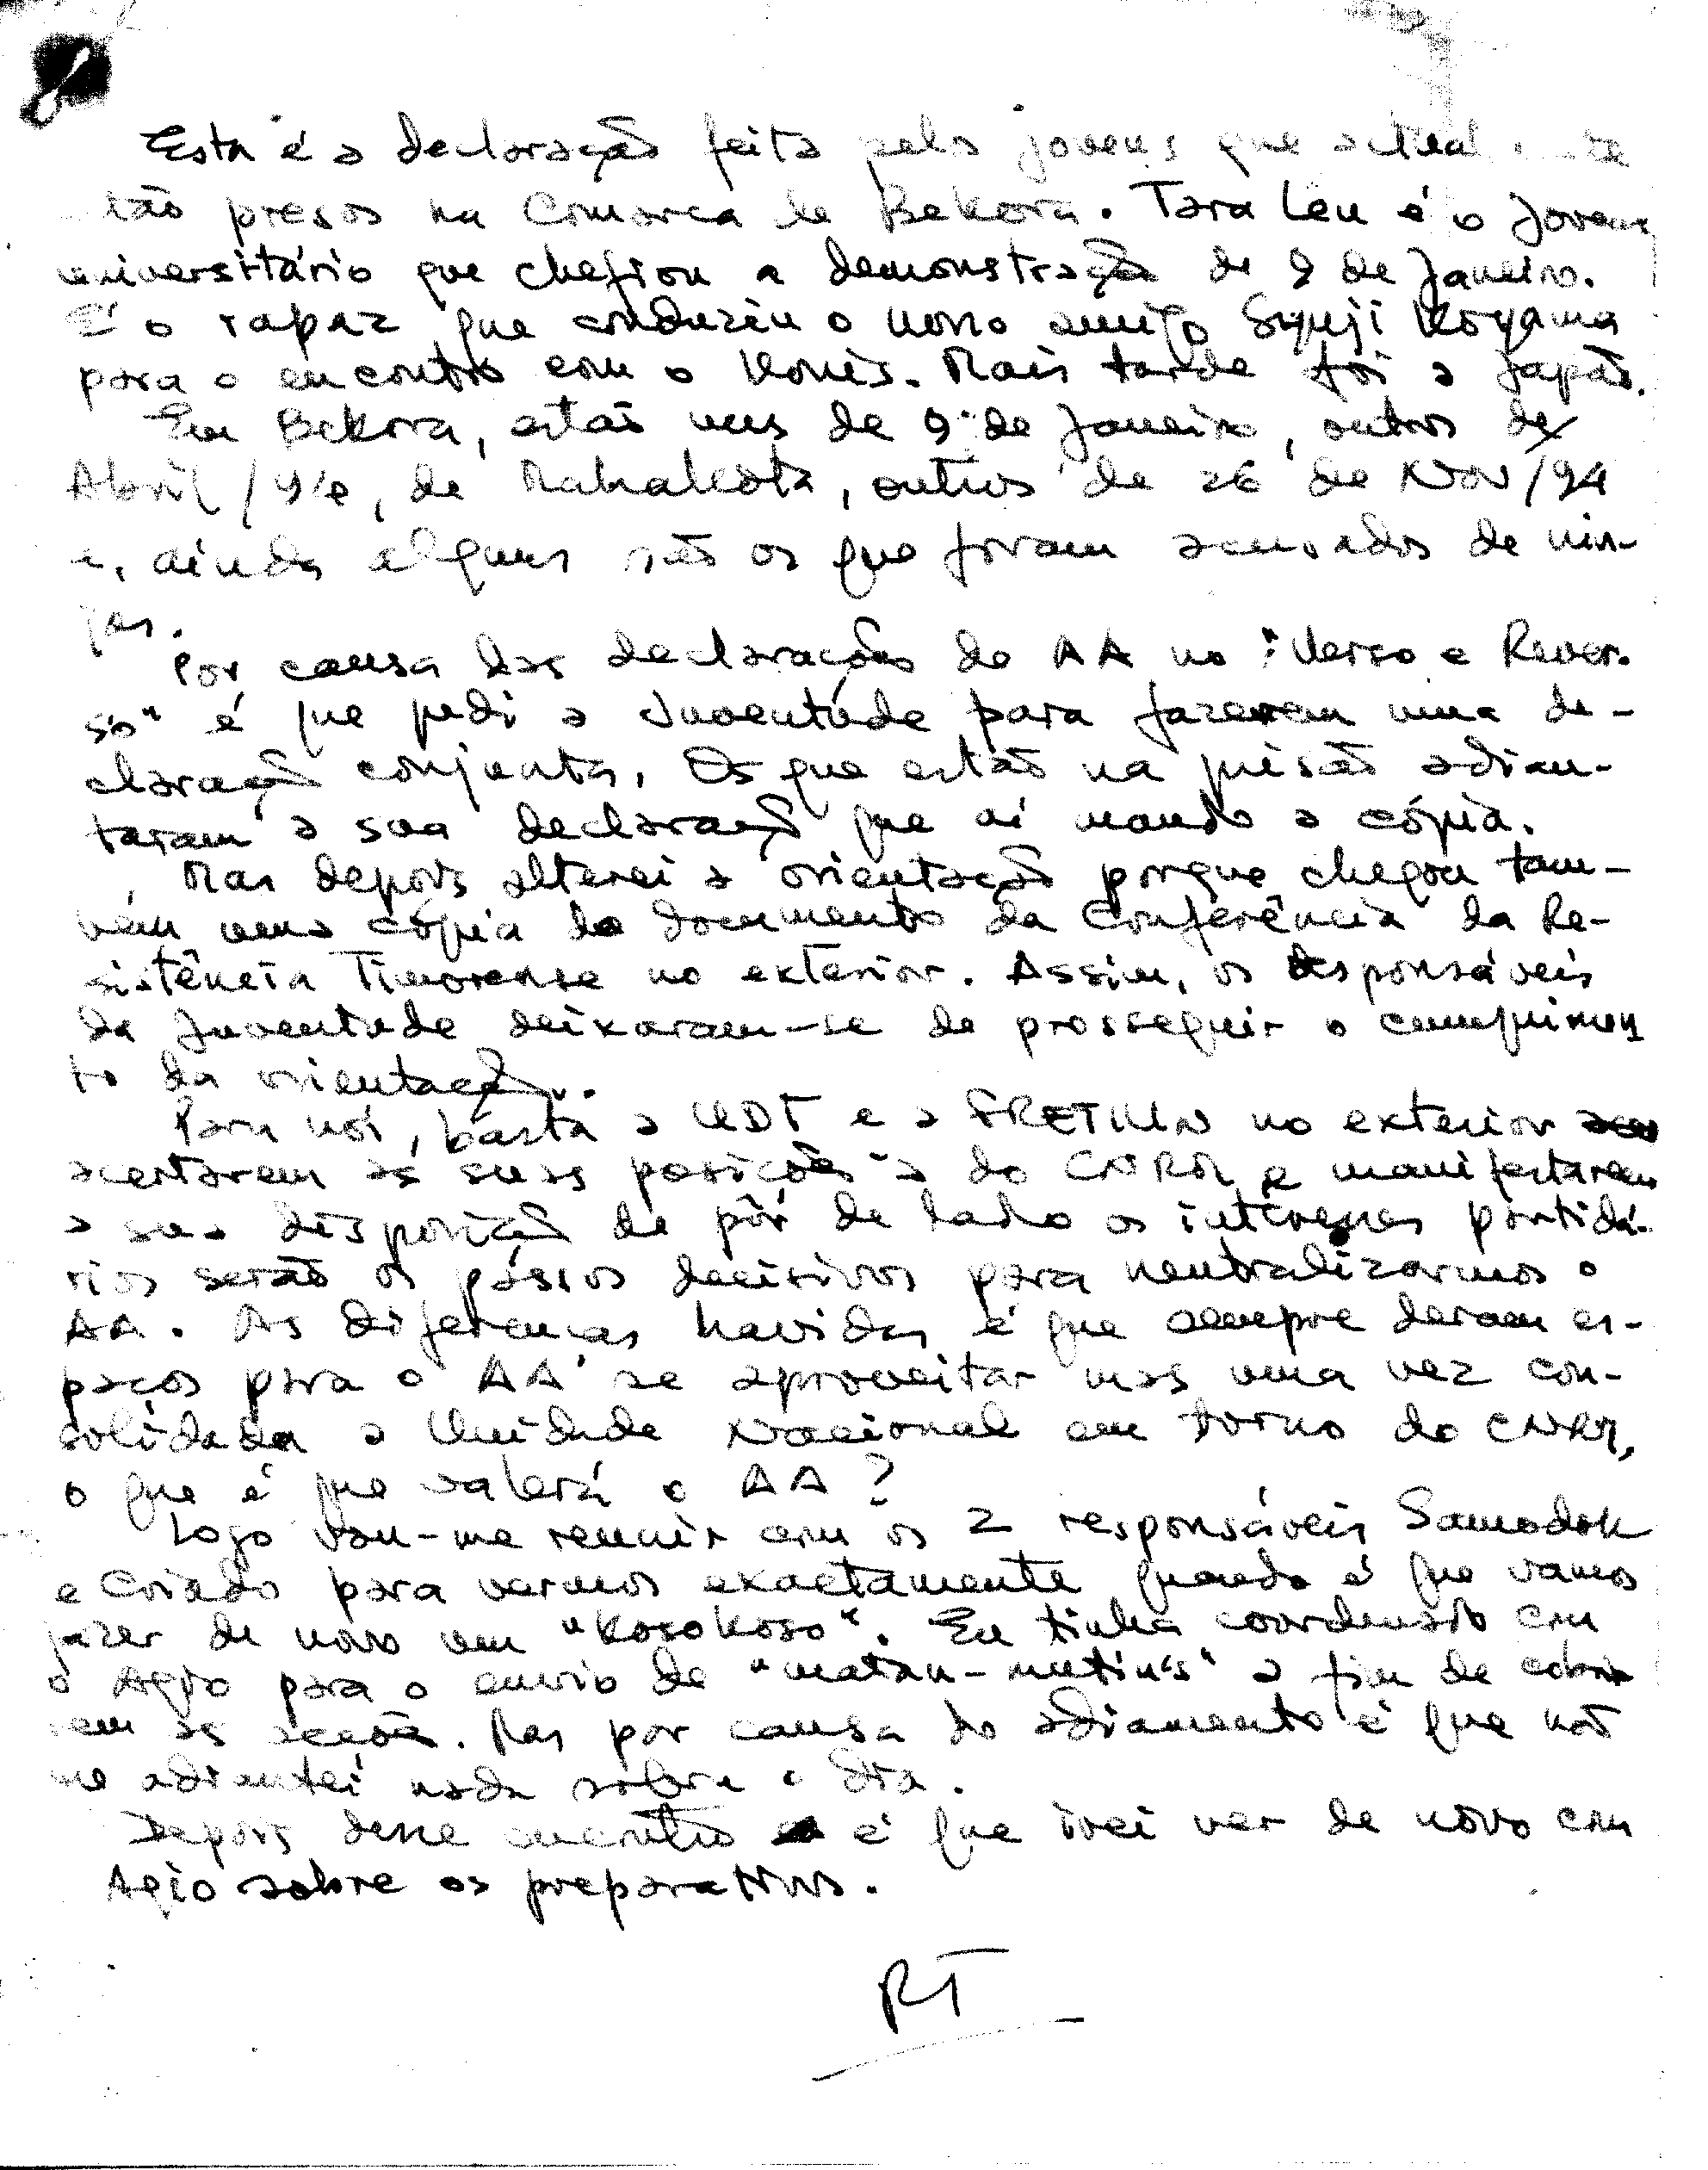 Esta é a declaração feita pelos jovens que
tão presos na Comarca de Bekora. Tara Leu é o jovem
universitário que chefiou a demonstração de 9 de Janeiro.
É o rapaz que conduziu o nosso amigo Koyama
para o encontro com o Konis. Mais tarde foi a Japão.
Em Bekora, estão uns de 9 de Janeiro, outros de
Abril / de Mahakota, outros de 26 de Nov/94
e, ainda alguns são os que foram acusados de nin-
jas.
Por causa das declarações do AA no "Verso e Rever-
so" é que pedi a Juventude para fazerem uma de-
claração conjunta. Os que estão na prisão adian-
taram a sua declaração que aí mando a cópia.
Mas depois alterei a orientação porque chegou tam-
bém uma cópia do documento da Conferência da Re-
sistência Timorense no exterior. Assim, os responsáveis
da Juventude deixaram-se de prosseguir o cumprimen
to da orientação.
Para nós, basta a UDT e a FRETILIN no exterior
acertarem as suas posições à do CNRM e manifestarem
a sua disposição de pôr de lado os interesses partidá-
rios serão os passos decisivos para neutralizarmos o
AA. As diferenças havidas é que sempre deram es-
paços para o AA se aproveitar mas uma vez con-
solidada a Unidade Nacional em torno do CNRM,
o que é que valerá o AA?
Logo vou-me reunir com os 2 responsáveis Samodok
e Criado para vermos exactamente quando é que vamos
fazer de novo um "Kosokoso". Eu tinha coordenado com
o Agio para o envio de "matan-mutin's" a fim de cobri
rem as acções. Mas por causa do adiamento é que não
me adiantei nada sobre o dia.
Depois desse encontro é que irei ver de novo com
Agio sobre os preparativos.
RT